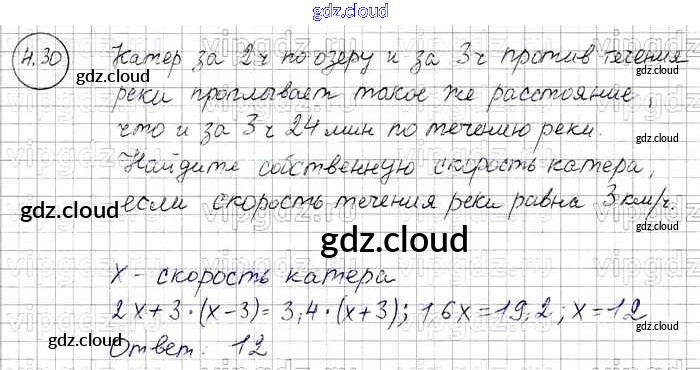 gdz.cloud
4.30
Катер за 2ч по озеру и за 3ч против течения
gdz.cloud
gdz.cloud
реки проплывает такое же расстояние,
что и за 3ч 24мин по течению реки.
gdz.cloud
Найдите собственную скорость катера,
gdz.cloud
если скорость течения реки равна 3км/ч.
gdz.cloud
gdz.cloud
x - скорость катера
2x+3·(x-3)=3,4·(x+3); 1,6x=19,2; x=12
gdz.cloud
gdz.cloud
Ответ: 12
gdz.cloud